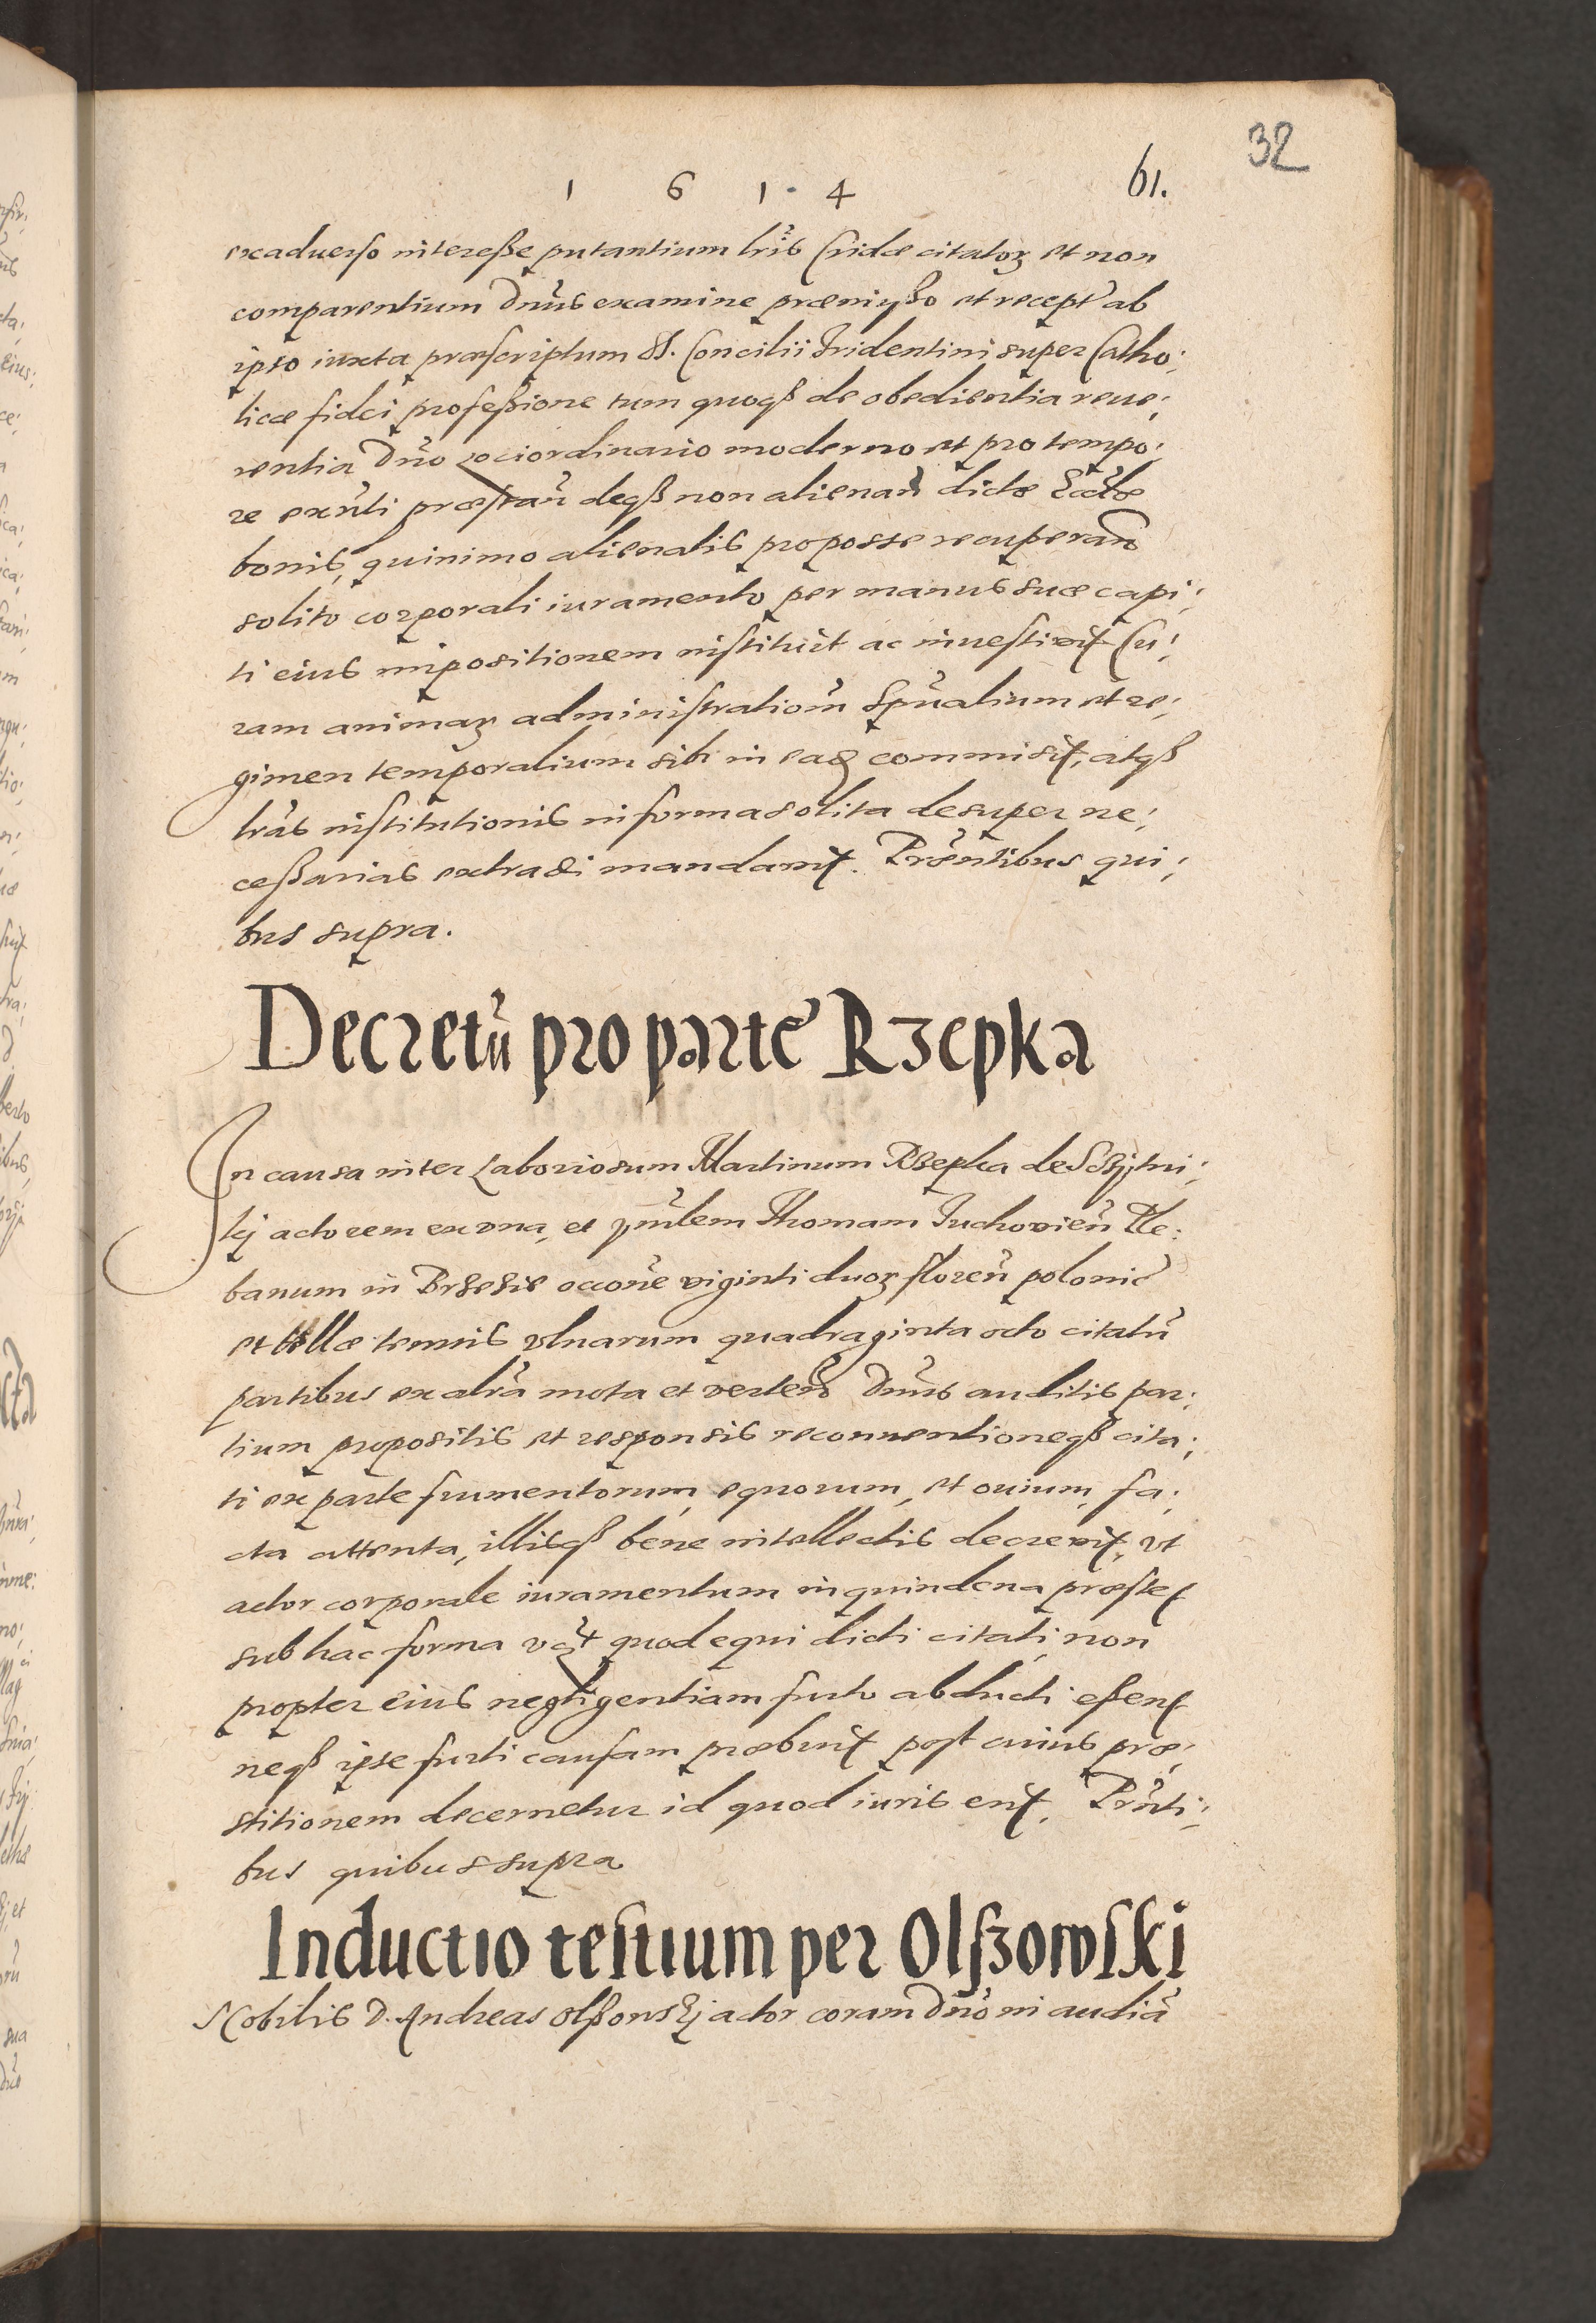 32
1 6 1 4 61.
exaduerso interesse putantium lris Cridæ citatoꝝ et non
comparentium Dnus examine præmisso et recept ab
ipso iuxta præscriptum SS. Concilii Tridentini super Catho:
licæ fidei professione tum quoqß de obedientia reue:
rentia Dno Lociordinario moderno et pro tempo:
re exnti præstan deqß non alienan dictæ Ecclæ
bonis, quinimo alienatis pro posse recuperan
solito corporali iuramento per manus suæ capi:
ti eius impositionem instituit ac inuestiuit Cu:
ram animaꝝ administrationem Spualium et re:
gimen temporalium sibi in eaꝫ commisit, atqß
lras institutionis in forma solita desuper ne:
cessarias extradi mandauit. Præntibus qui:
bus supra.
Decretū pro parte Rzepka
In causa inter Laboriosum Martinum Rzepka de
actorem ex vna, et Thomam Tuchovien Ple:
banum in Brzezie occone viginti duoꝝ floren polonic
et tellæ tenuis vlnarum quadraginta octo citatū
partibus ex altra mota et verten Dnus auditis par:
tium propositis et responsis reconuentioneqß cita:
ti ex parte frumentorum, equorum, et ouium, fa:
cta attenta, illisqß bene intellectis decreuit, vt
actor corporale iuramentum in quindena præstet
sub hac forma vꝫt quod equi dicti citati non
propter eius negligentiam furto abducti essent
neqß ipse furti causam præbuit post cuius præ:
stitionem decernetur id quod iuris erit. Prnti:
bus quibus supra
Inductio testium per Olszowski
Nobilis D. Andreas Olßowskj actor coram Dno in audiā